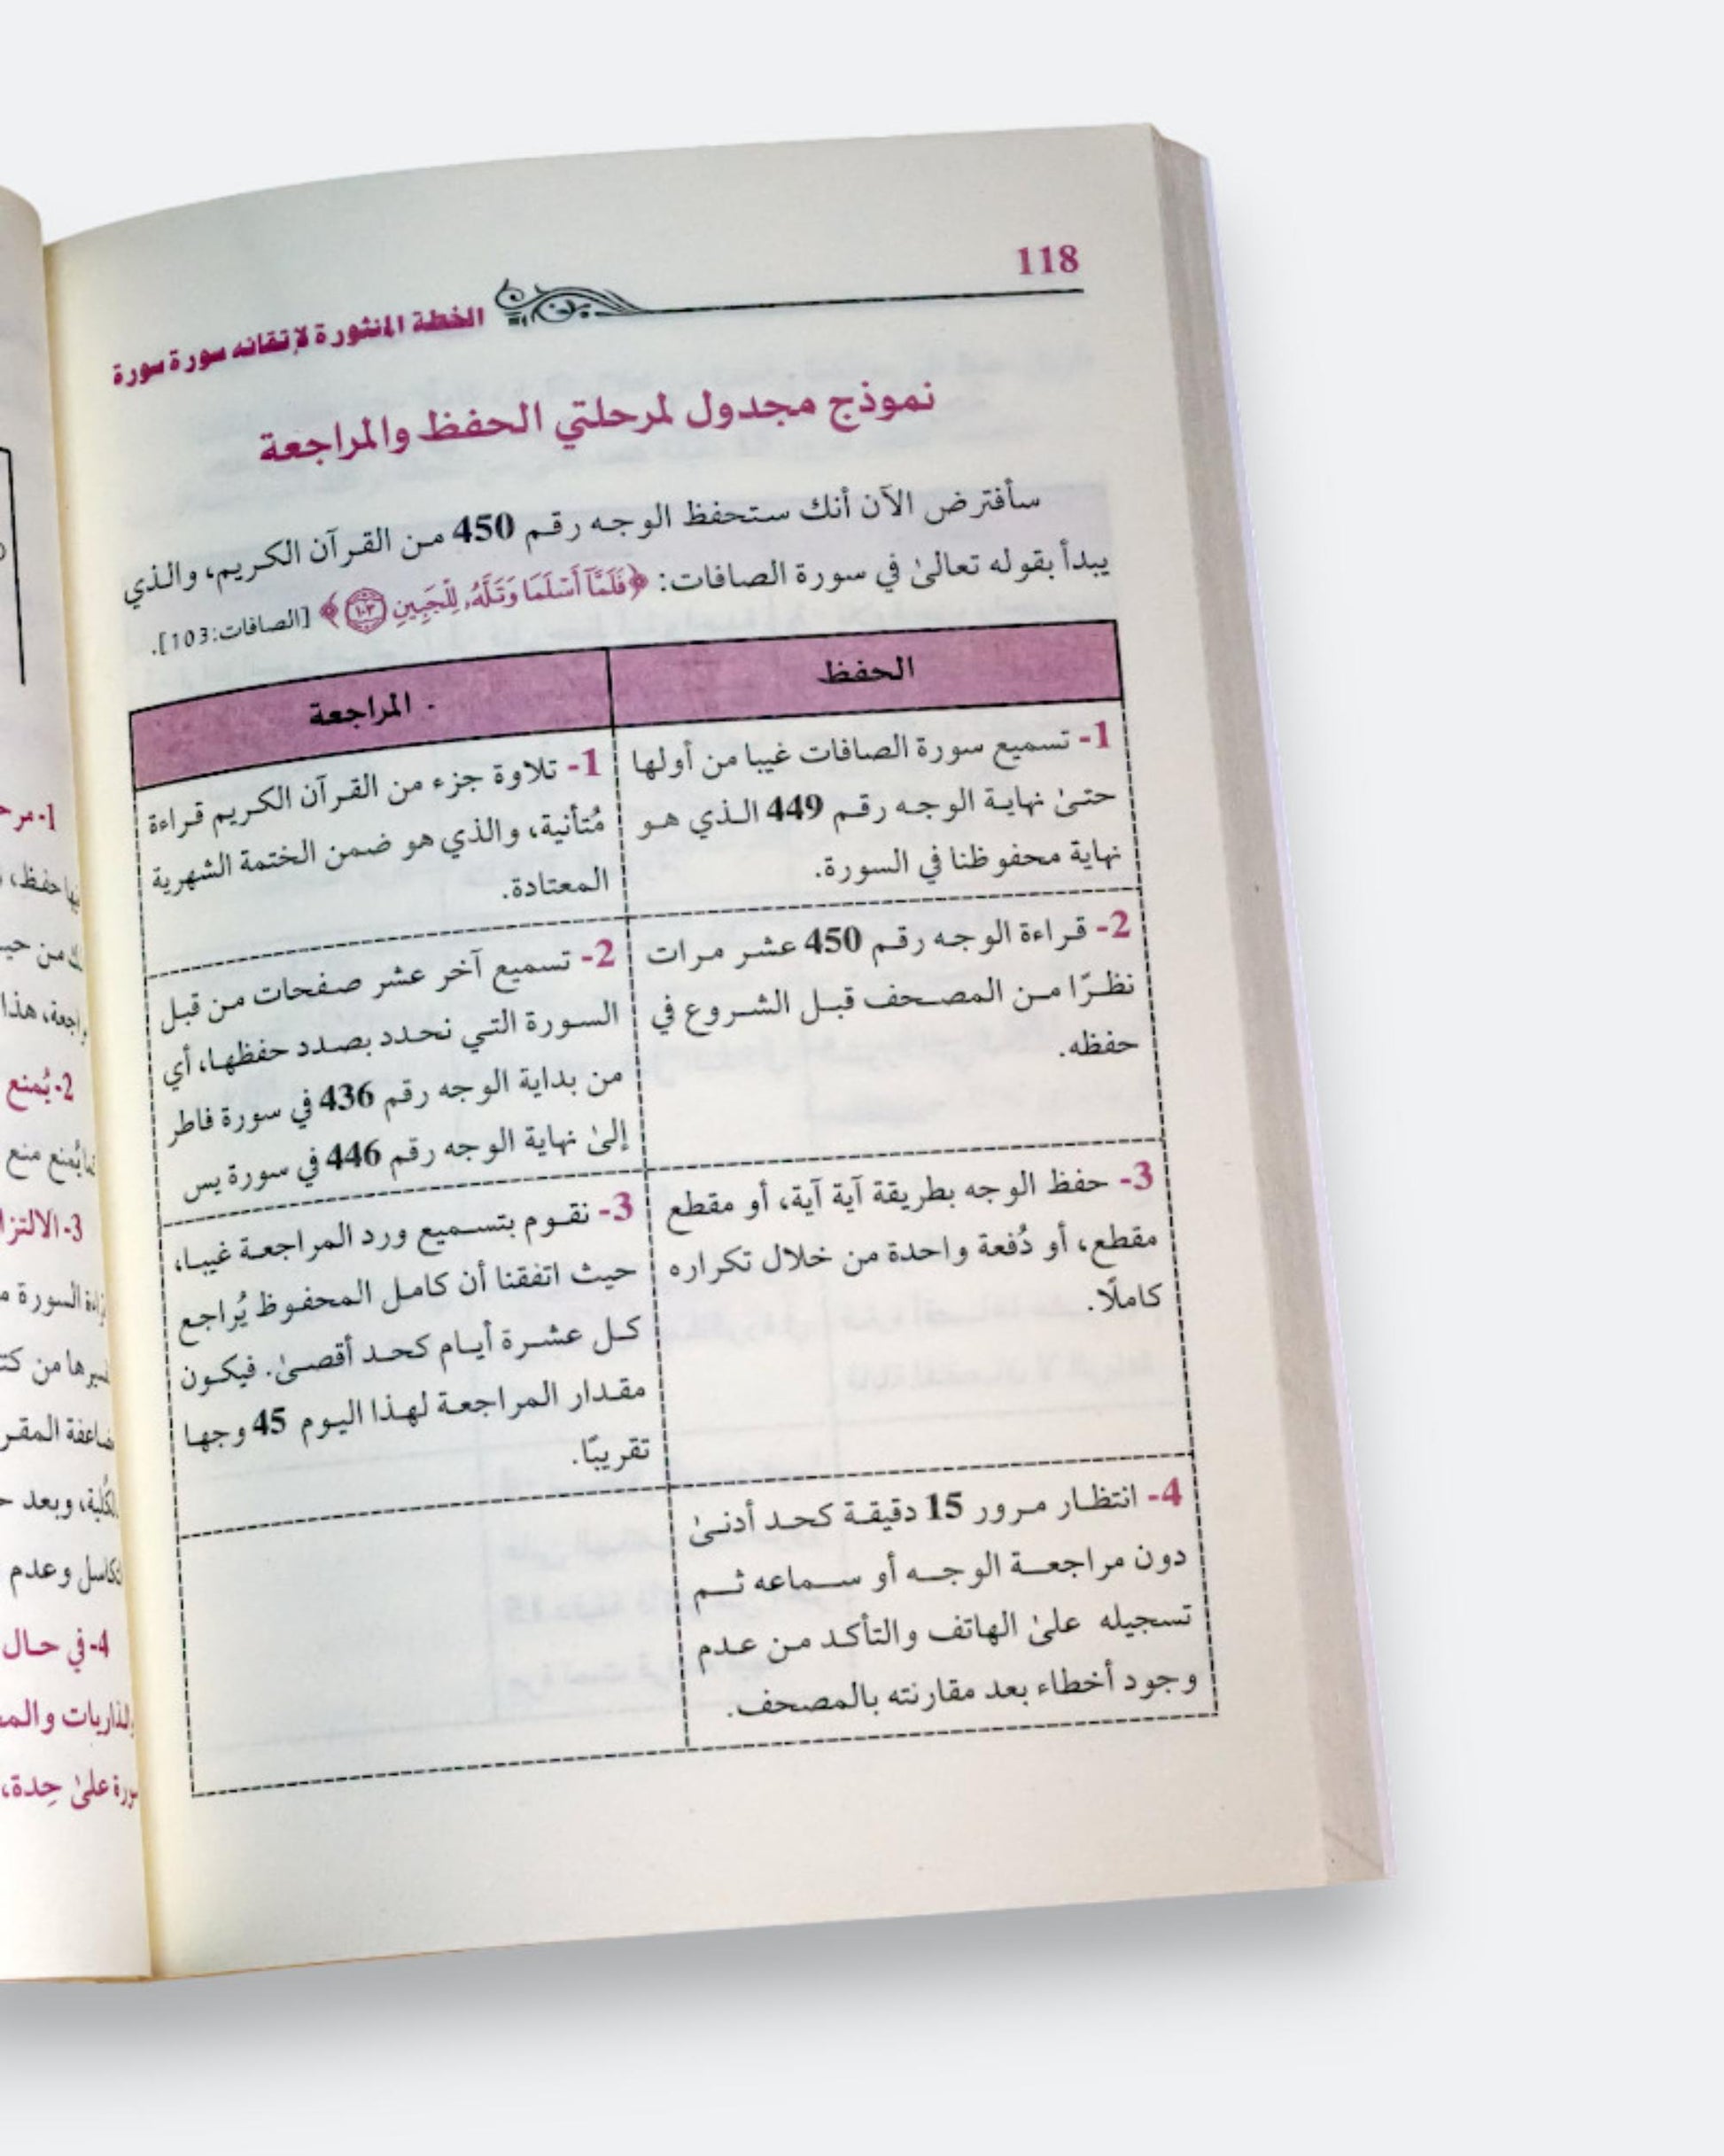 118
الخطة المنثورة لإتقانه سورة سورة
نموذج مجدول لمرحلتي الحفظ والمراجعة
سأفترض الآن أنك ستحفظ الوجه رقم 450 من القرآن الكريم، والذي
يبدأ بقوله تعالىٰ في سورة الصافات: ﴿فَلَمَّآ أَسْلَمَا وَتَلَّهُۥ لِلْجَبِينِ ١٠٣﴾ [الصافات:103].
الحفظ
1- تسميع سورة الصافات غيبا من أولها
حتىٰ نهاية الوجه رقم 449 الذي هو
نهاية محفوظنا في السورة.
المراجعة
1- تلاوة جزء من القرآن الكريم قراءة
مُتأنية، والذي هو ضمن الختمة الشهرية
المعتادة.
2- قراءة الوجه رقم 450 عشر مرات
نظرًا من المصحف قبل الشروع في
حفظه.
2- تسميع آخر عشر صفحات من قبل
السورة التي نحدد بصدد حفظها، أي
من بداية الوجه رقم 436 في سورة فاطر
إلىٰ نهاية الوجه رقم 446 في سورة يس
3- حفظ الوجه بطريقة آية آية، أو مقطع
مقطع، أو دُفعة واحدة من خلال تكراره
كاملًا.
3- نقوم بتسميع ورد المراجعة غيبا،
حيث اتفقنا أن كامل المحفوظ يُراجع
كل عشرة أيام كحد أقصىٰ. فيكون
مقدار المراجعة لهذا اليوم 45 وجها
تقريبًا.
4- انتظار مرور 15 دقيقة كحد أدنىٰ
دون مراجعة الوجه أو سماعه ثم
تسجيله علىٰ الهاتف والتأكد من عدم
وجود أخطاء بعد مقارنته بالمصحف.
حفظ،
من
هذا
2- يُمنع
يُمنع منع
3-
السورة
من
وبعد
وعدم
4- في حال
سورة علىٰ حِدة،